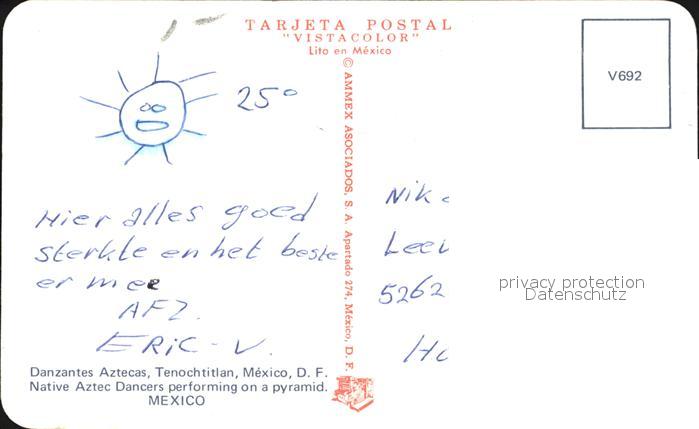 TARJETA POSTAL
"VISTACOLOR"
Lito en México
© AMMEX ASOCIADOS, S. A. Apartado 274, México, D. F.
V692
25°
Hier alles goed
sterkte en het beste
er mee
AFZ.
ERIC-V.
Nik
Lee
5262
Ho
privacy protection
Datenschutz
Danzantes Aztecas, Tenochtitlan, México, D. F.
Native Aztec Dancers performing on a pyramid.
MEXICO